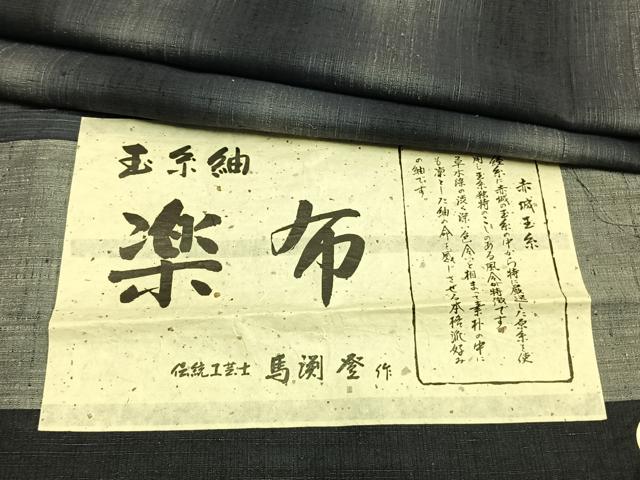 玉糸紬
楽布
伝統工芸士 馬渕登 作
赤城玉糸
経糸に赤城の玉糸の中から特に厳選した原糸を使
用し玉糸独特のこしのある風合が特徴です。
草木染の淡く深い色合いと相まって素朴の中に
も凛とした紬の命を感じさせる本格派好み
の紬です。